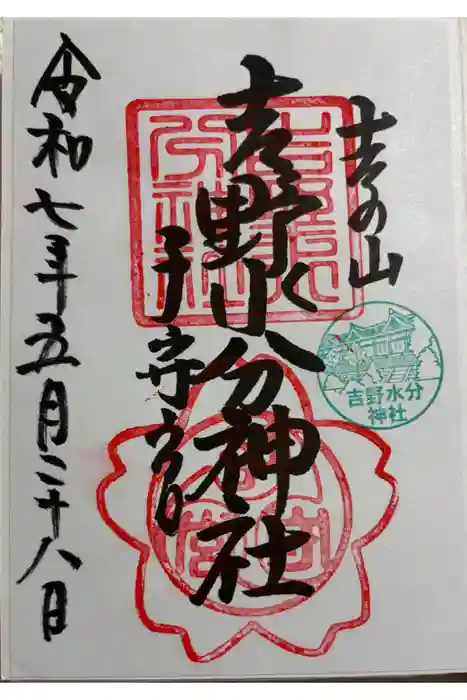 吉の山
吉野水分神社
子守宮
令和七年五月二十八日
吉野水分
神社